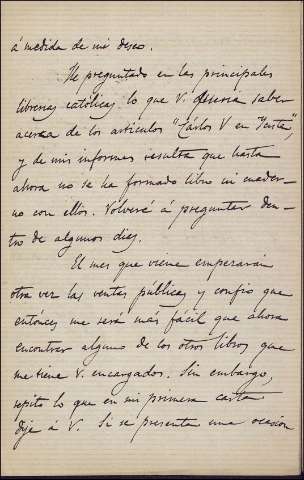 á medida de mi deseo.
He preguntado en las principales
librerias católicas lo que V. desería saber
acerca de los articulos "Cárlos V en Yuste",
y de mis informes resulta que hasta
ahora no se ha formado libro ni cuader-
no con ellos. Volveré á preguntar den-
tro de algunos dias.
El mes que viene empezarán
otra vez las ventas publicas y confio que
entónces me será más fácil que ahora
encontrar alguno de los otros libros que
me tiene V. encargados. Sin embargo,
repito lo que en mi primera carta
dije á V. Si se presenta una ocasión